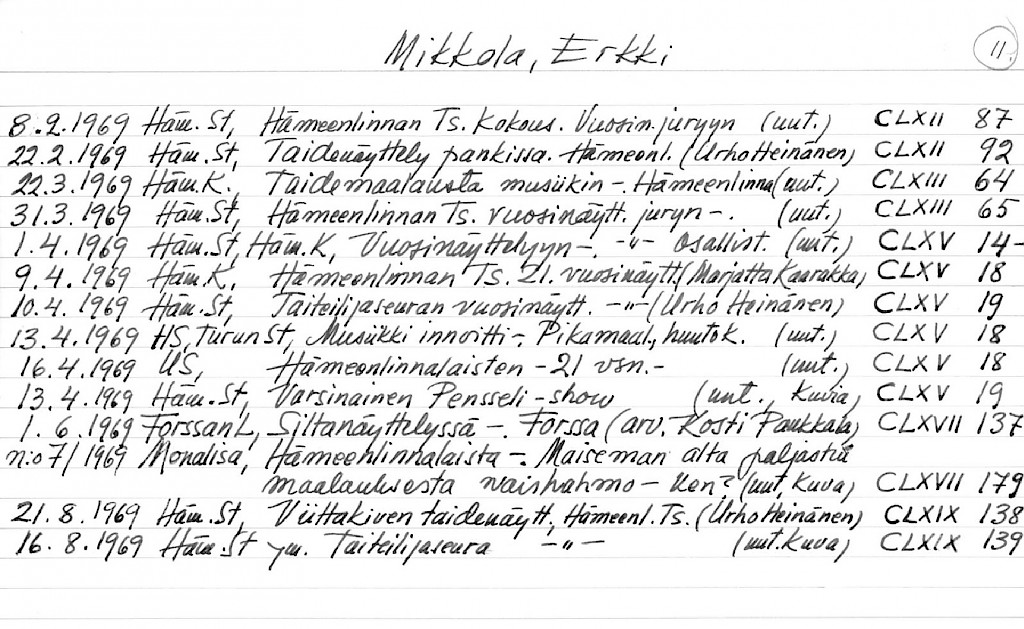 Mikkola, Erkki
11.
8.2.1969 Häm.St, Hämeenlinnan Ts. Kokous. Vuosin.juryyn (uut.) CLXII 87
22.2.1969 Häm.St, Taidenäyttely pankissa. Hämeenl. (Urho Heinänen) CLXII 92
22.3.1969 Häm.K., Taidemaalausta musiikin -. Hämeenlinna (uut.) CLXIII 64
31.3.1969 Häm.St, Hämeenlinnan Ts. vuosinäytt. juryn -. (uut.) CLXIII 65
1.4.1969 Häm.St, Häm.K, Vuosinäyttelyyn -. -"- osallist. (uut.) CLXV 14-
9.4.1969 Häm.K, Hämeenlinnan Ts. 21. vuosinäytt. (Marjatta Kaarakka) CLXV 18
10.4.1969 Häm.St, Taiteilijaseuran vuosinäytt. -"- (Urho Heinänen) CLXV 19
13.4.1969 HS, Turun St, Musiikki innoitti -. Pikamaal., huutok. (uut.) CLXV 18
16.4.1969 US, Hämeenlinnalaisten - 21 vsn. - (uut.) CLXV 18
13.4.1969 Häm.St, Varsinainen Pensseli-show (uut., kuvia) CLXV 19
1.6.1969 Forssan L, Siltanäyttelyssä -. Forssa (arv. Kosti Paukkala) CLXVII 137
n:o 7/1969 Monalisa, Hämeenlinnalaista -. Maiseman alta paljastui
maalauksesta naishahmo - ken? (uut, kuva) CLXVII 179
21.8.1969 Häm.St, Viittakiven taidenäytt, Hämeenl.Ts. (Urho Heinänen) CLXIX 138
16.8.1969 Häm.St ym. Taiteilijaseura -"- (uut.kuva) CLXIX 139